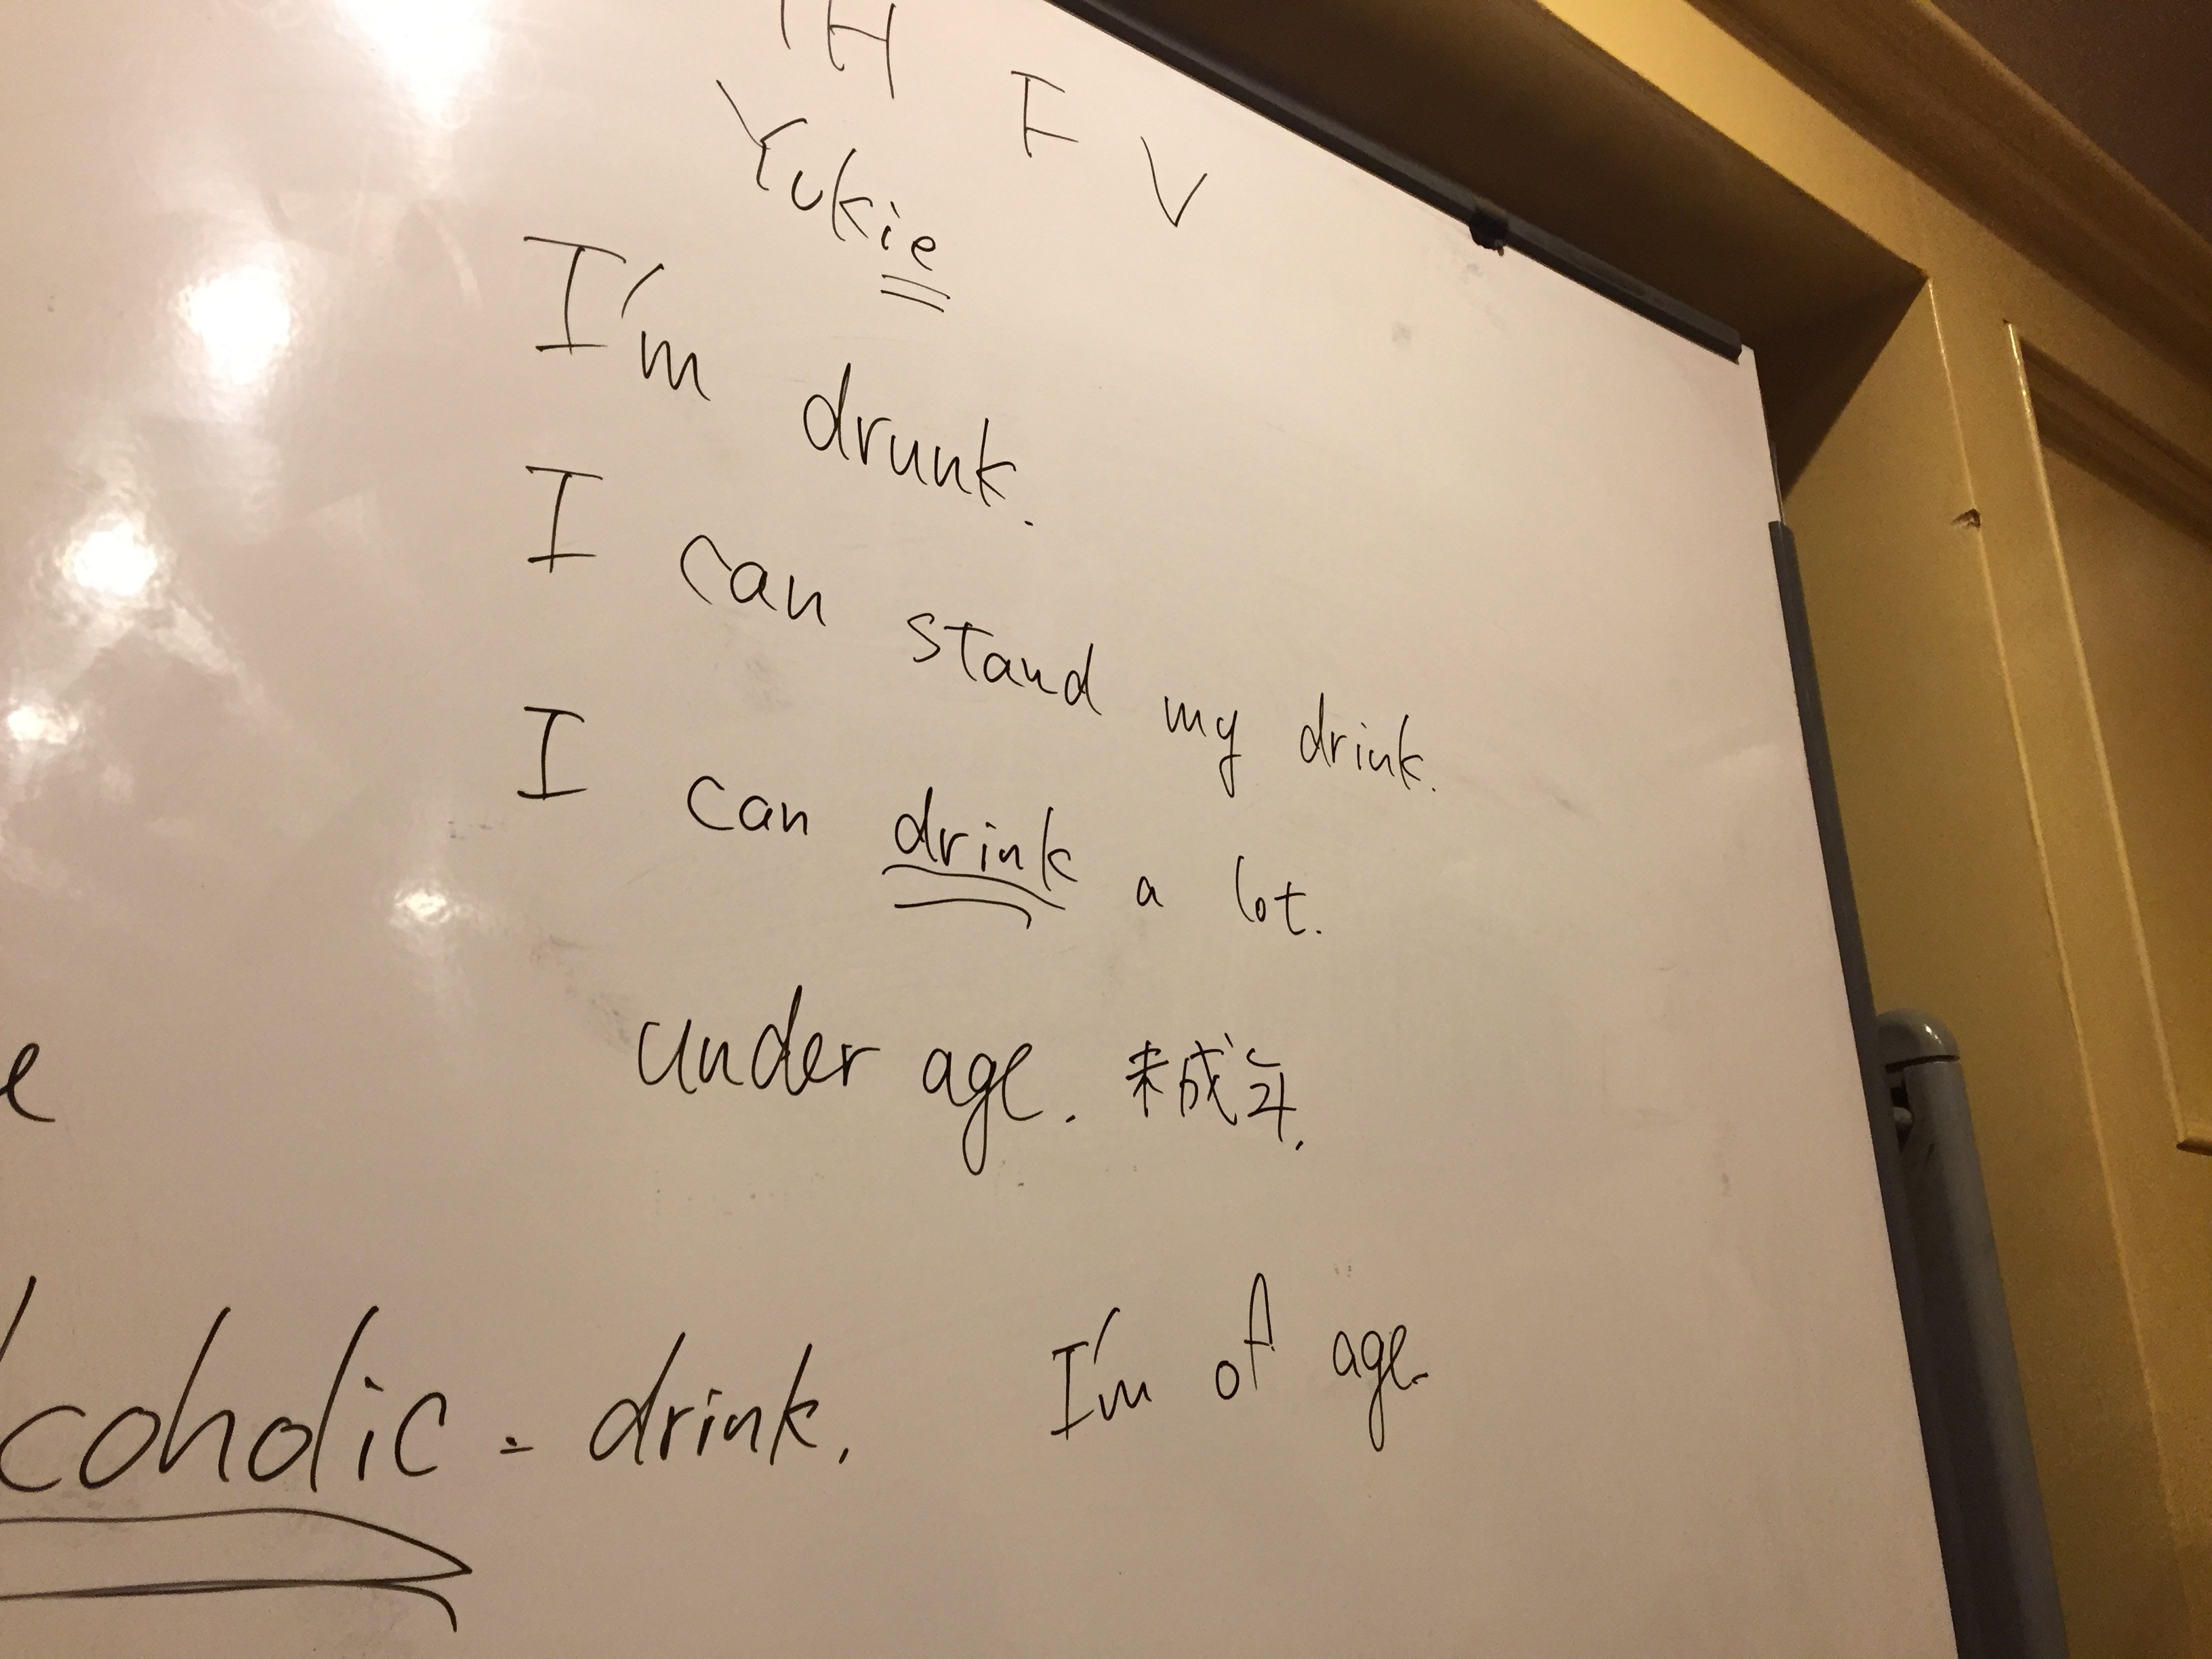 TH F V
Yukie
I'm drunk.
I can stand my drink.
I can drink a lot.
under age. 未成年.
e
coholic - drink.
I'm of age.